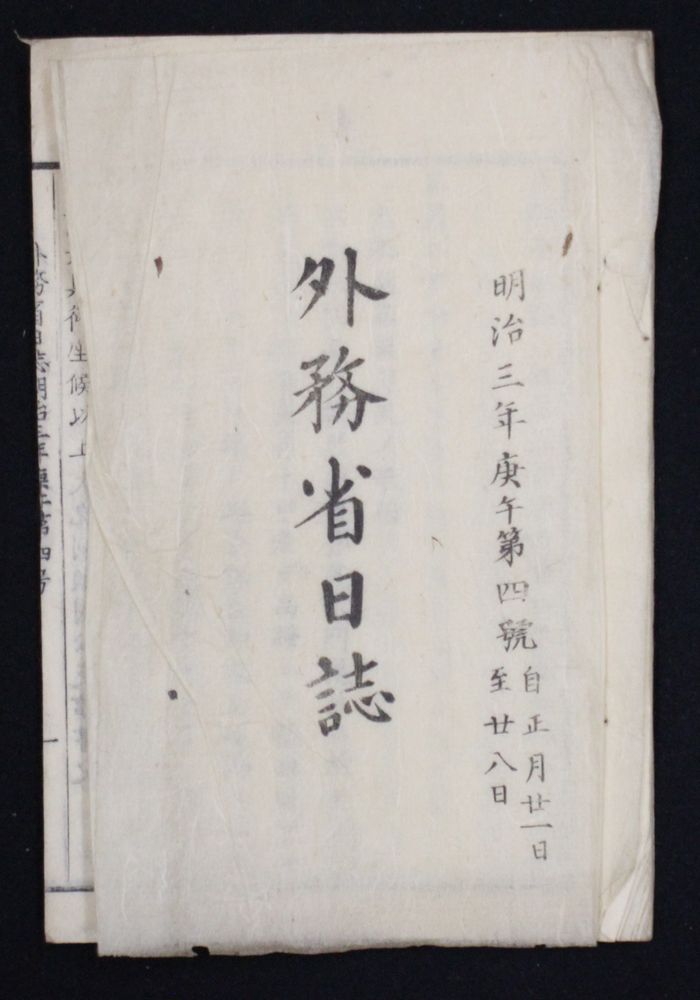 明治三年庚午第四號
自正月廿一日
至廿八日
外務省日誌
生候以上
外務省日志明治三年庚午第四号